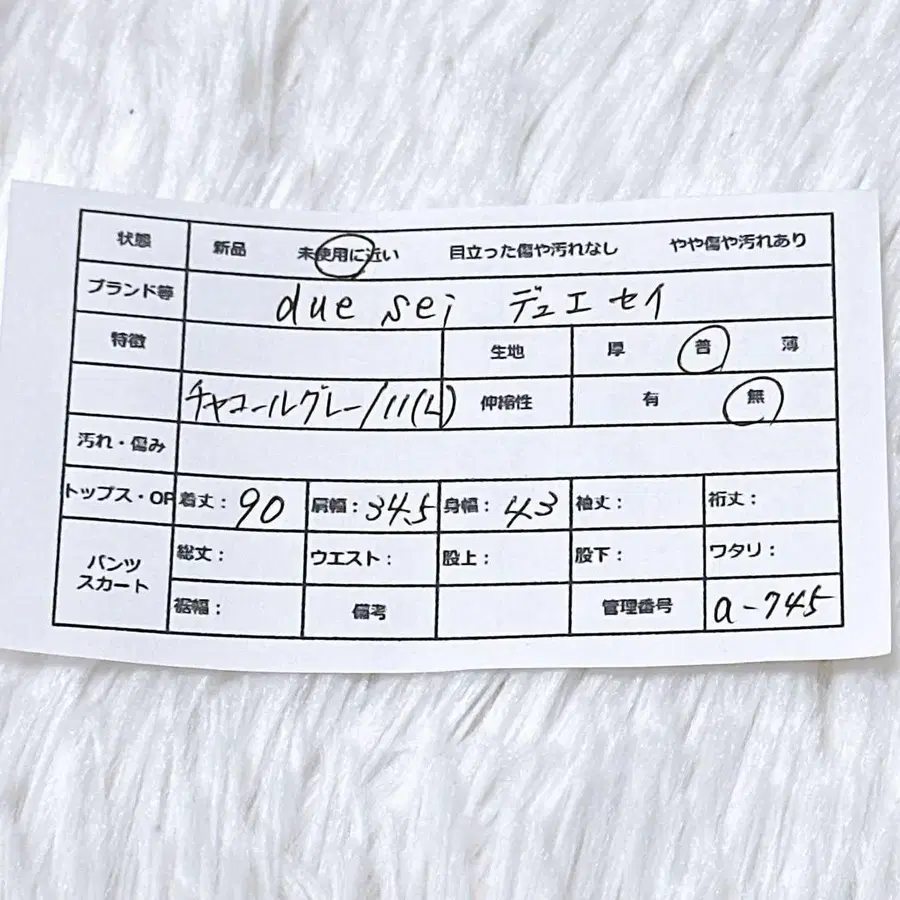 状態 新品 未使用に近い 目立った傷や汚れなし やや傷や汚れあり
ブランド等 due sei デュエセイ
特徴 生地 厚 普 薄
チャコールグレー/11(L) 伸縮性 有 無
汚れ・傷み
トップス・OP 着丈: 90 肩幅: 34.5 身幅: 43 袖丈: 裄丈:
パンツ スカート 総丈: ウエスト: 股上: 股下: ワタリ:
裾幅: 備考 管理番号 a-745